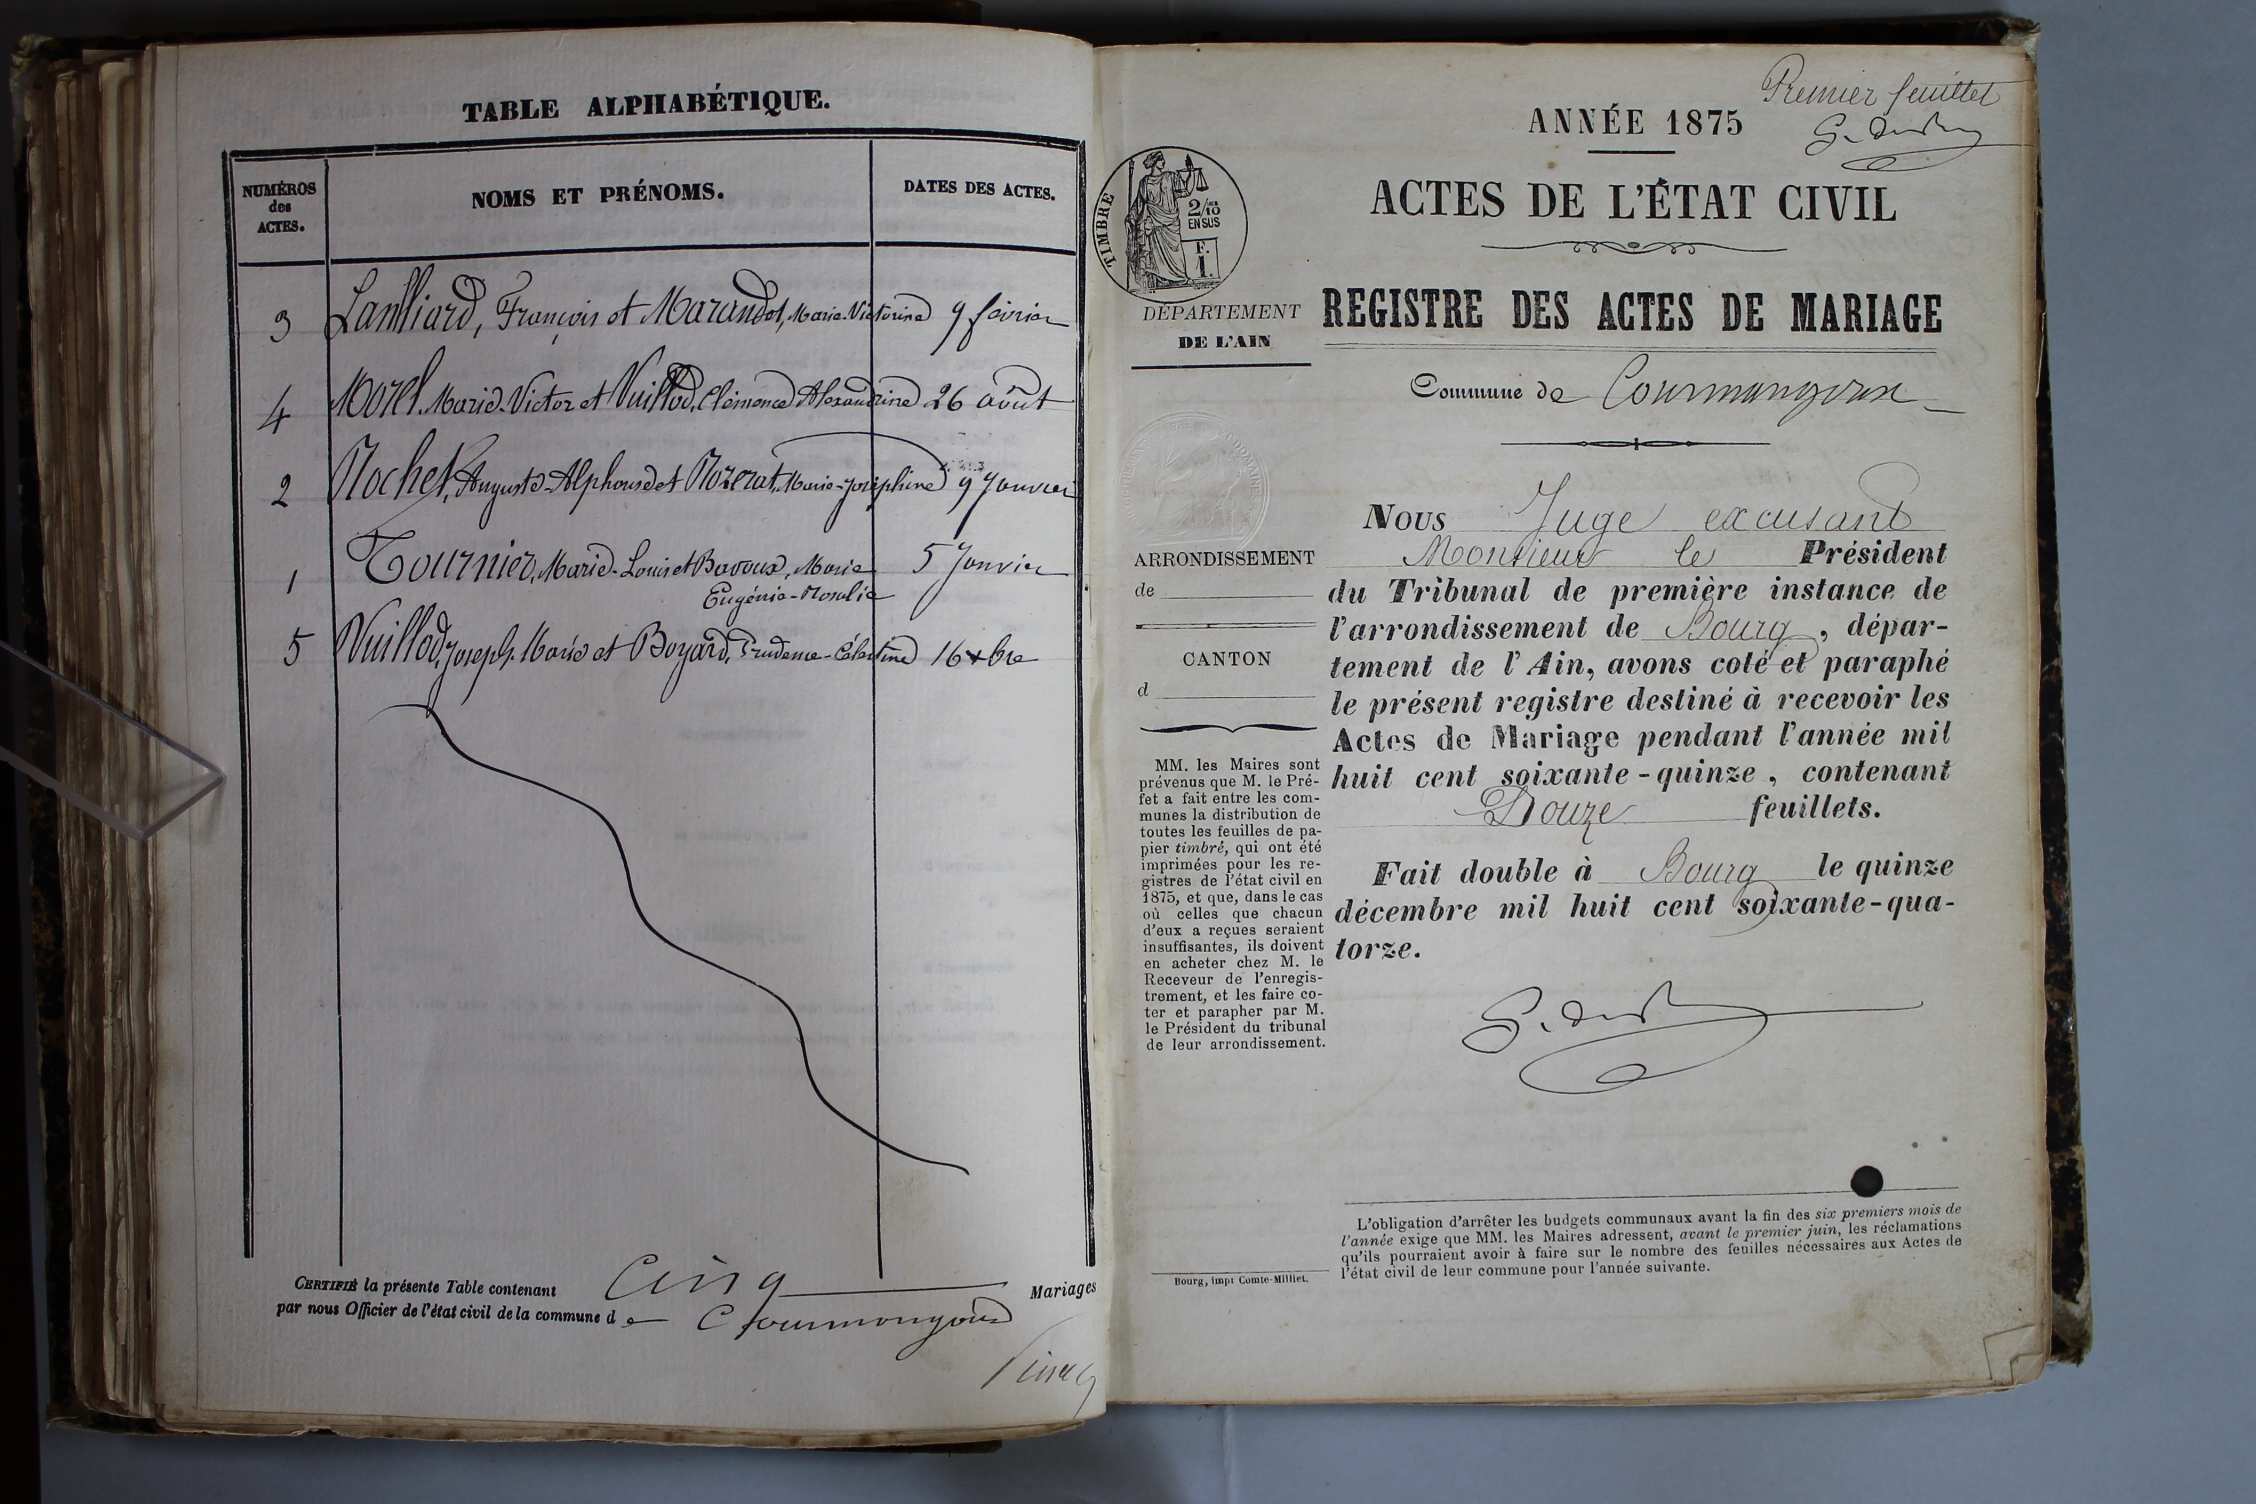 TABLE ALPHABÉTIQUE.
NUMÉROS
des
ACTES.
NOMS ET PRÉNOMS.
DATES DES ACTES.
3 Lanlliard, François et Marandet, Marie-Victorine 9 février
4 Morel, Marie-Victor et Vuillod, Clémence Alexandrine 26 août
2 Rochet, Auguste-Alphonse et Rozerat, Marie-Joséphine 9 Janvier
1 Tournier, Marie-Louis et Bavoux, Marie 5 Janvier
Eugénie-Rosalie
5 Vuillod, Joseph-Marie et Boyard, Prudence-Célestine 16 xbre
CERTIFIÉ la présente Table contenant Cinq Mariages
par nous Officier de l'état civil de la commune de Courmangoux
Premier feuillet
ANNÉE 1875
ACTES DE L'ÉTAT CIVIL
TIMBRE
2/10
EN SUS
F.
1.
DÉPARTEMENT
DE L'AIN
REGISTRE DES ACTES DE MARIAGE
Commune de Courmangoux
Nous Juge excusant
Monsieur le Président
du Tribunal de première instance de
l'arrondissement de Bourg, dépar-
tement de l'Ain, avons coté et paraphé
le présent registre destiné à recevoir les
Actes de Mariage pendant l'année mil
huit cent soixante-quinze, contenant
Douze feuillets.
Fait double à Bourg le quinze
décembre mil huit cent soixante-qua-
torze.
ARRONDISSEMENT
de
CANTON
d
MM. les Maires sont
prévenus que M. le Pré-
fet a fait entre les com-
munes la distribution de
toutes les feuilles de pa-
pier timbré, qui ont été
imprimées pour les re-
gistres de l'état civil en
1875, et que, dans le cas
où celles que chacun
d'eux a reçues seraient
insuffisantes, ils doivent
en acheter chez M. le
Receveur de l'enregis-
trement, et les faire co-
ter et parapher par M.
le Président du tribunal
de leur arrondissement.
Bourg, impr Comte-Milliet.
L'obligation d'arrêter les budgets communaux avant la fin des six premiers mois de
l'année exige que MM. les Maires adressent, avant le premier juin, les réclamations
qu'ils pourraient avoir à faire sur le nombre des feuilles nécessaires aux Actes de
l'état civil de leur commune pour l'année suivante.